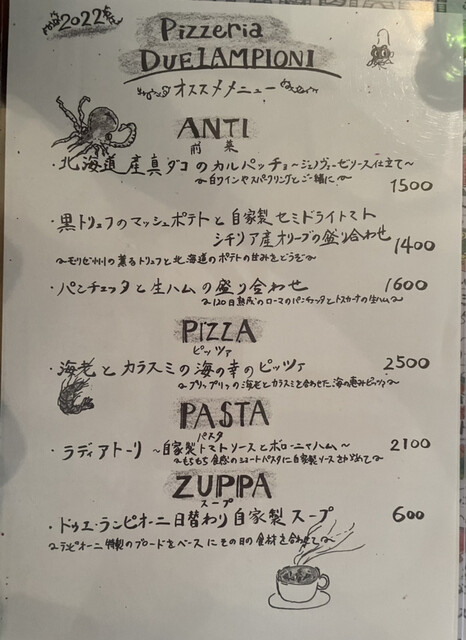 2022
Pizzeria
DUE LAMPIONI
オススメメニュー
ANTI
前菜
・北海道産真ダコのカルパッチョ〜ジェノヴェーゼソース仕立て〜
〜白ワインやスパークリングとご一緒に〜
1500
・黒トリュフのマッシュポテトと自家製セミドライトマト
シチリア産オリーブの盛り合わせ
1400
〜モリゼ州の薫るトリュフと北海道のポテトの甘みをどうぞ〜
・パンチェッタと生ハムの盛り合わせ 1600
〜120日熟成のローマのパンチェッタとトスカーナの生ハム〜
PIZZA
ピッツァ
・海老とカラスミの海の幸のピッツァ 2500
〜プリップリッの海老とカラスミを合わせた海の恵みピッツァ〜
PASTA
パスタ
・ラディアトーリ 〜自家製トマトソースとボローニャハム〜 2100
〜もちもち食感のショートパスタに自家製ソースを
ZUPPA
スープ
・ドゥエ・ランピオーニ日替わり自家製スープ 600
特製のブロードをベースにその日の食材を合わせて〜